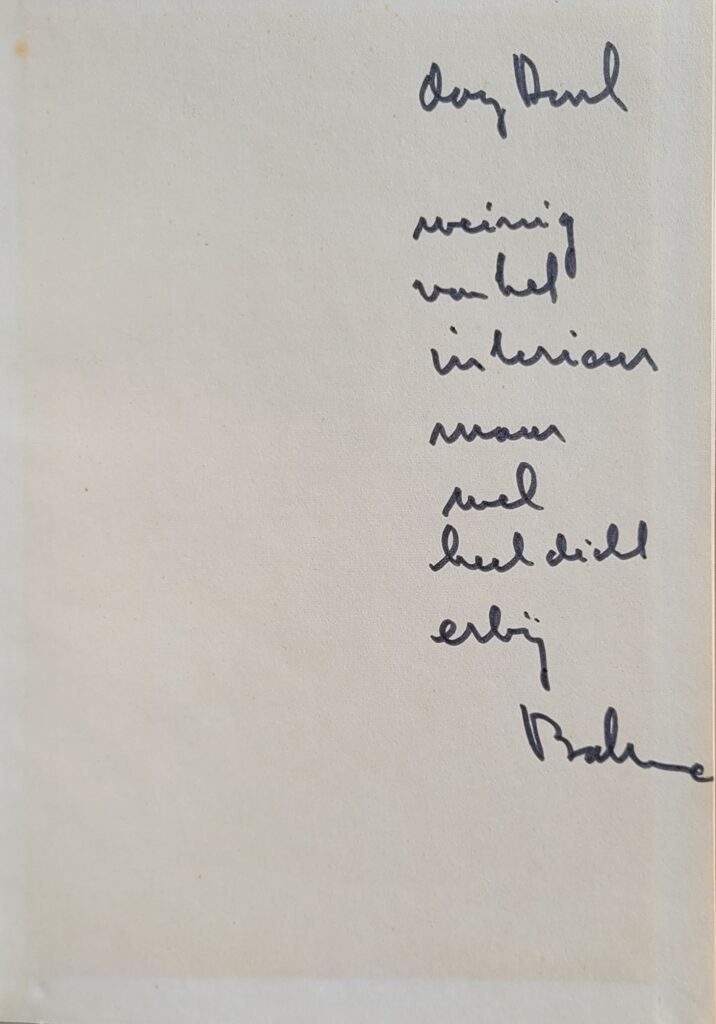 dag Paul
weinig
van het
interieur
maar
wel
heel dicht
erbij